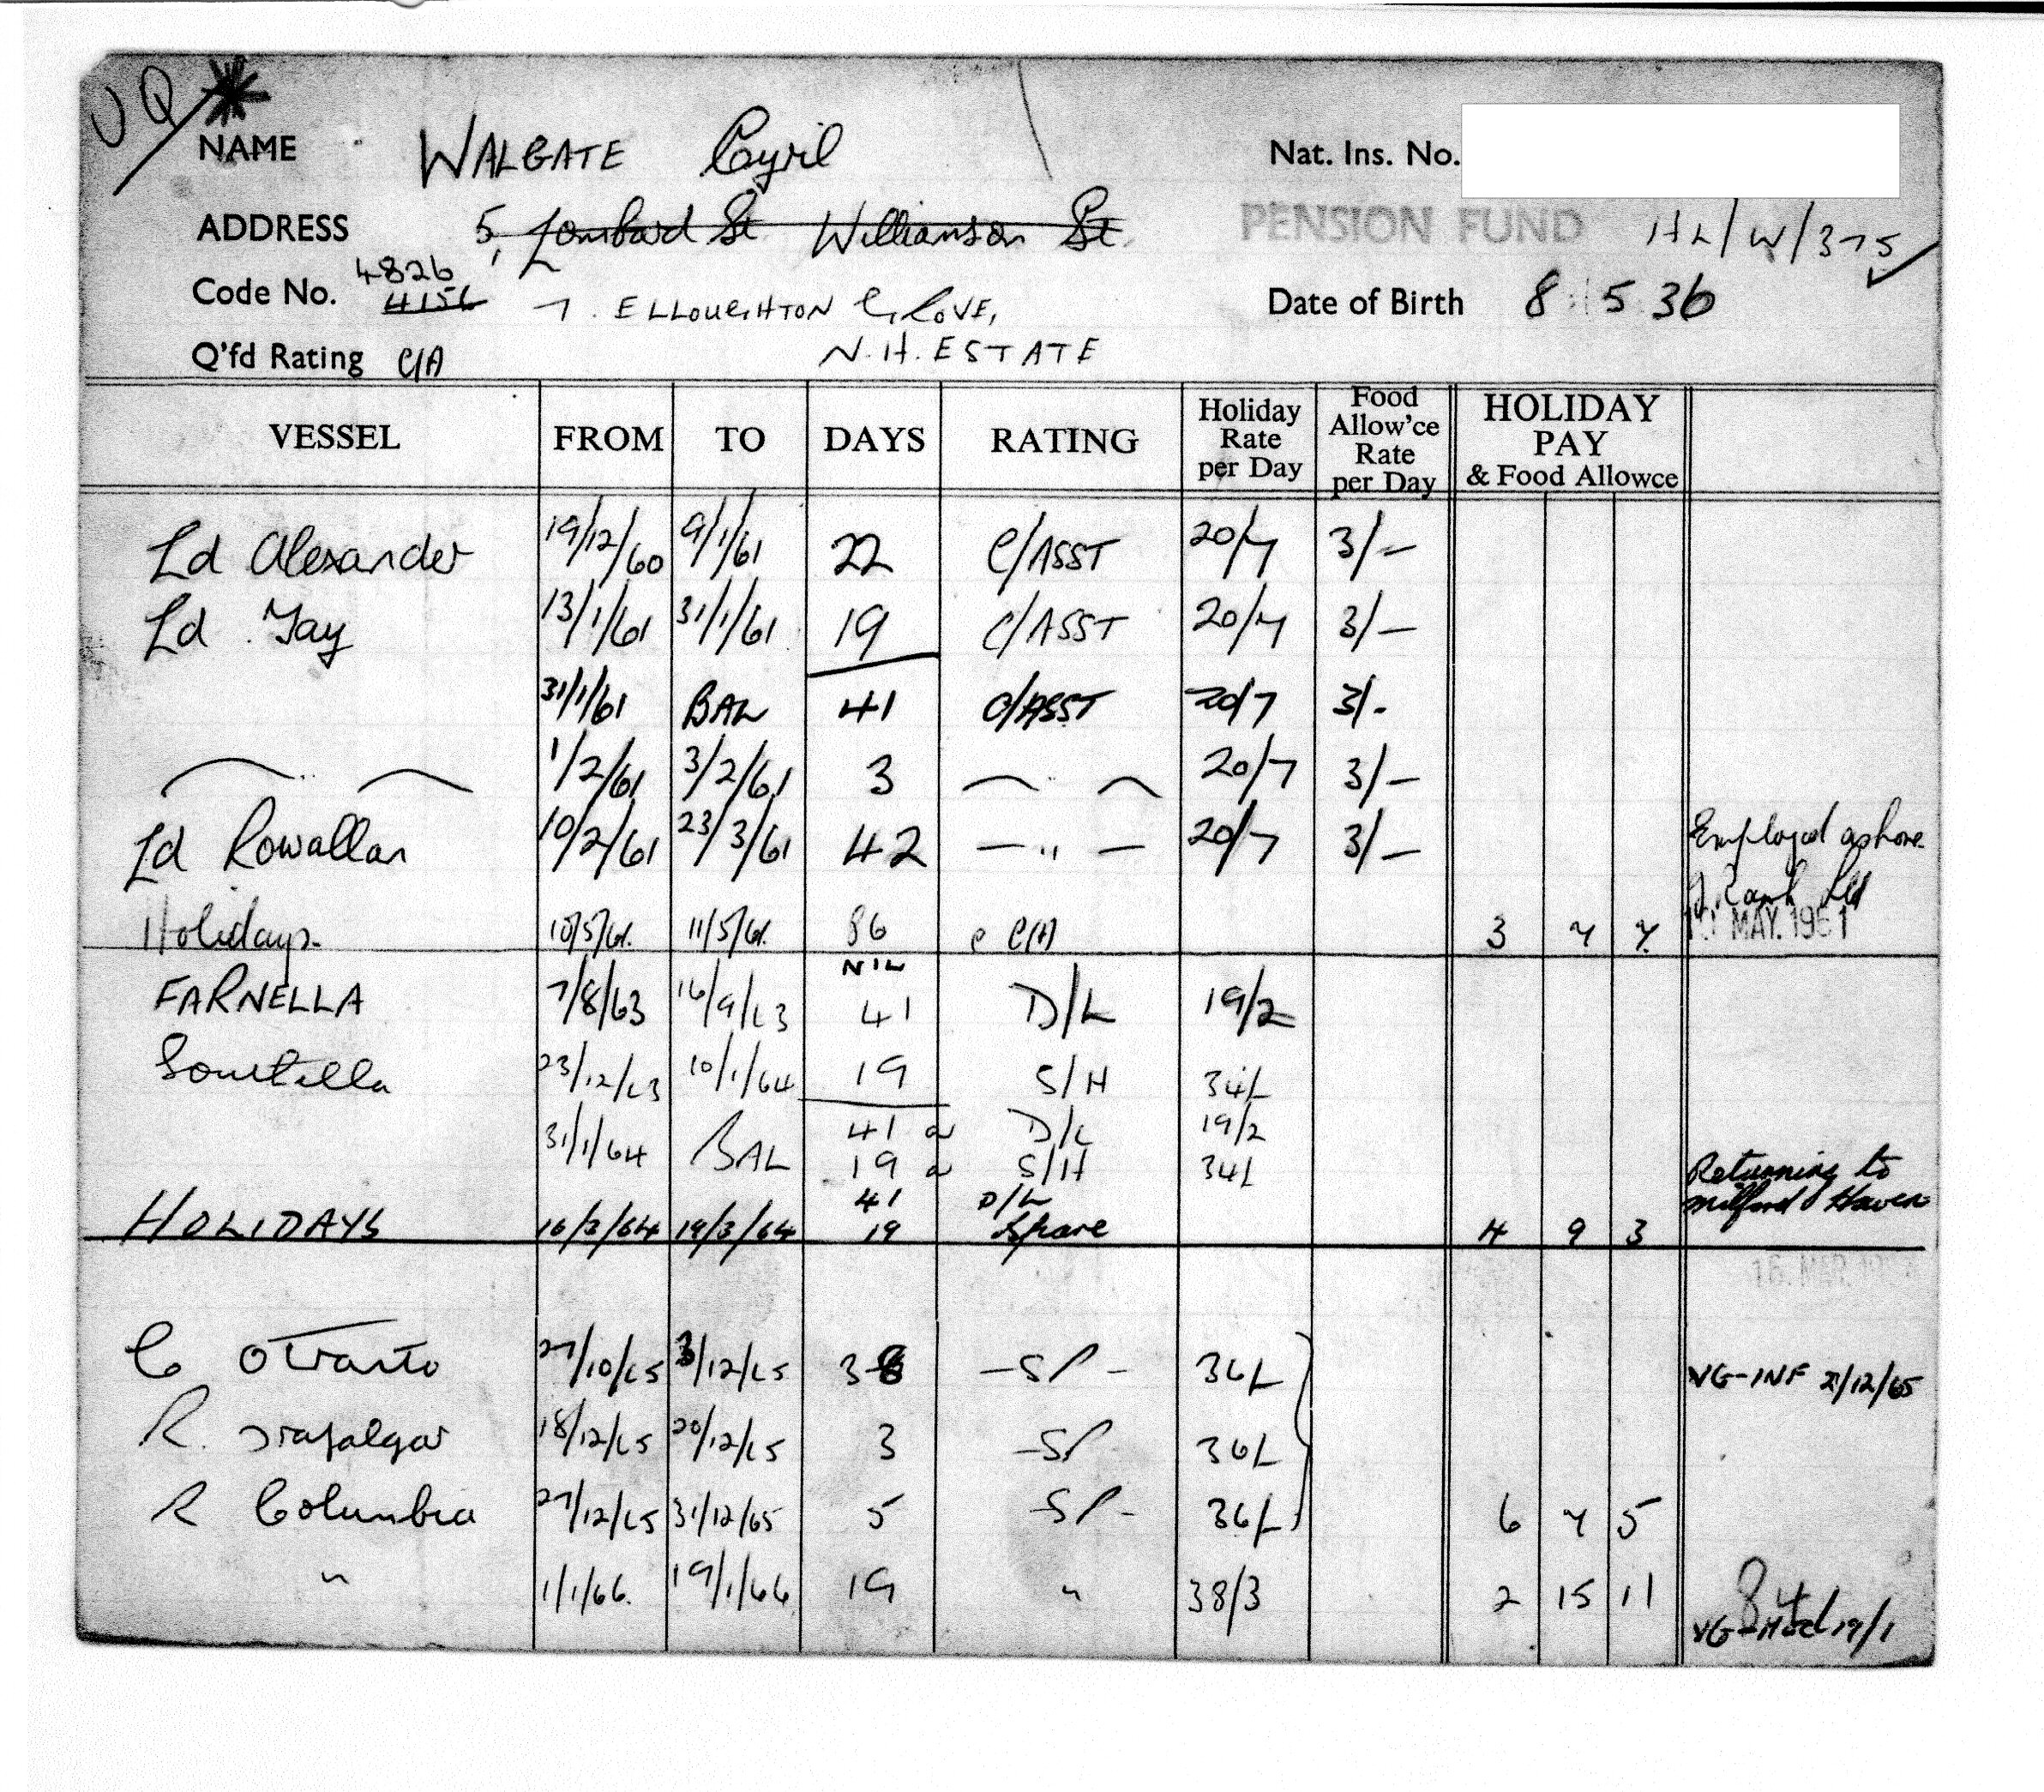 UQ
NAME WALGATE Cyril Nat. Ins. No.
ADDRESS 5, Lombard St Williamson St. PENSION FUND HL/W/375
Code No. 4826 4156 7. ELLOUGHTON GROVE, Date of Birth 8 5 36
Q'fd Rating C/A N.H. ESTATE
VESSEL FROM TO DAYS RATING Holiday Rate per Day Food Allow'ce Rate per Day HOLIDAY PAY & Food Allowce
Ld Alexander 19/12/60 9/1/61 22 C/ASST 20/7 3/-
Ld Tay 13/1/61 31/1/61 19 C/ASST 20/7 3/-
31/1/61 BAL 41 C/ASST 20/7 3/-
" 1/2/61 3/2/61 3 " 20/7 3/-
Ld Rowallan 10/2/61 23/3/61 42 - " - 20/7 3/- Employed ashore
J. Rank Ltd
Holidays. 10/5/61. 11/5/61. 86 C/A 3 7 7 MAY. 1961
NIL
FARNELLA 7/8/63 16/9/63 41 D/L 19/2
23/12/63 10/1/64 19 S/H 34/-
31/1/64 BAL 41 a D/L 19/2
19 a S/H 34/- Returning to
41 D/L Milford Haven
HOLIDAYS 16/3/64 19/3/64 19 Spare 4 9 3
16. MAR. 19
C Otranto 27/10/65 3/12/65 38 - SP - 36/- VG-INF 2/12/65
R. Trafalgar 18/12/65 20/12/65 3 - SP 36/-
R Columbia 27/12/65 31/12/65 5 - SP - 36/- 6 7 5
" 1/1/66. 19/1/66 19 " 38/3 2 15 11
VG - 19/1